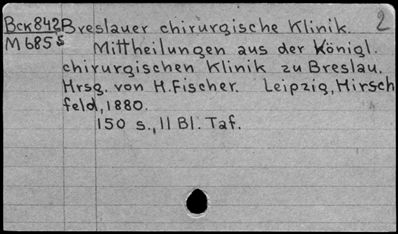 Bck842 Breslauer chirurgische Klinik. 2
M685s Mittheilungen aus der Königl.
chirurgischen Klinik zu Breslau.
Hrsg. von H.Fischer. Leipzig, Hirsch
feld, 1880.
150 s., 11 Bl. Taf.